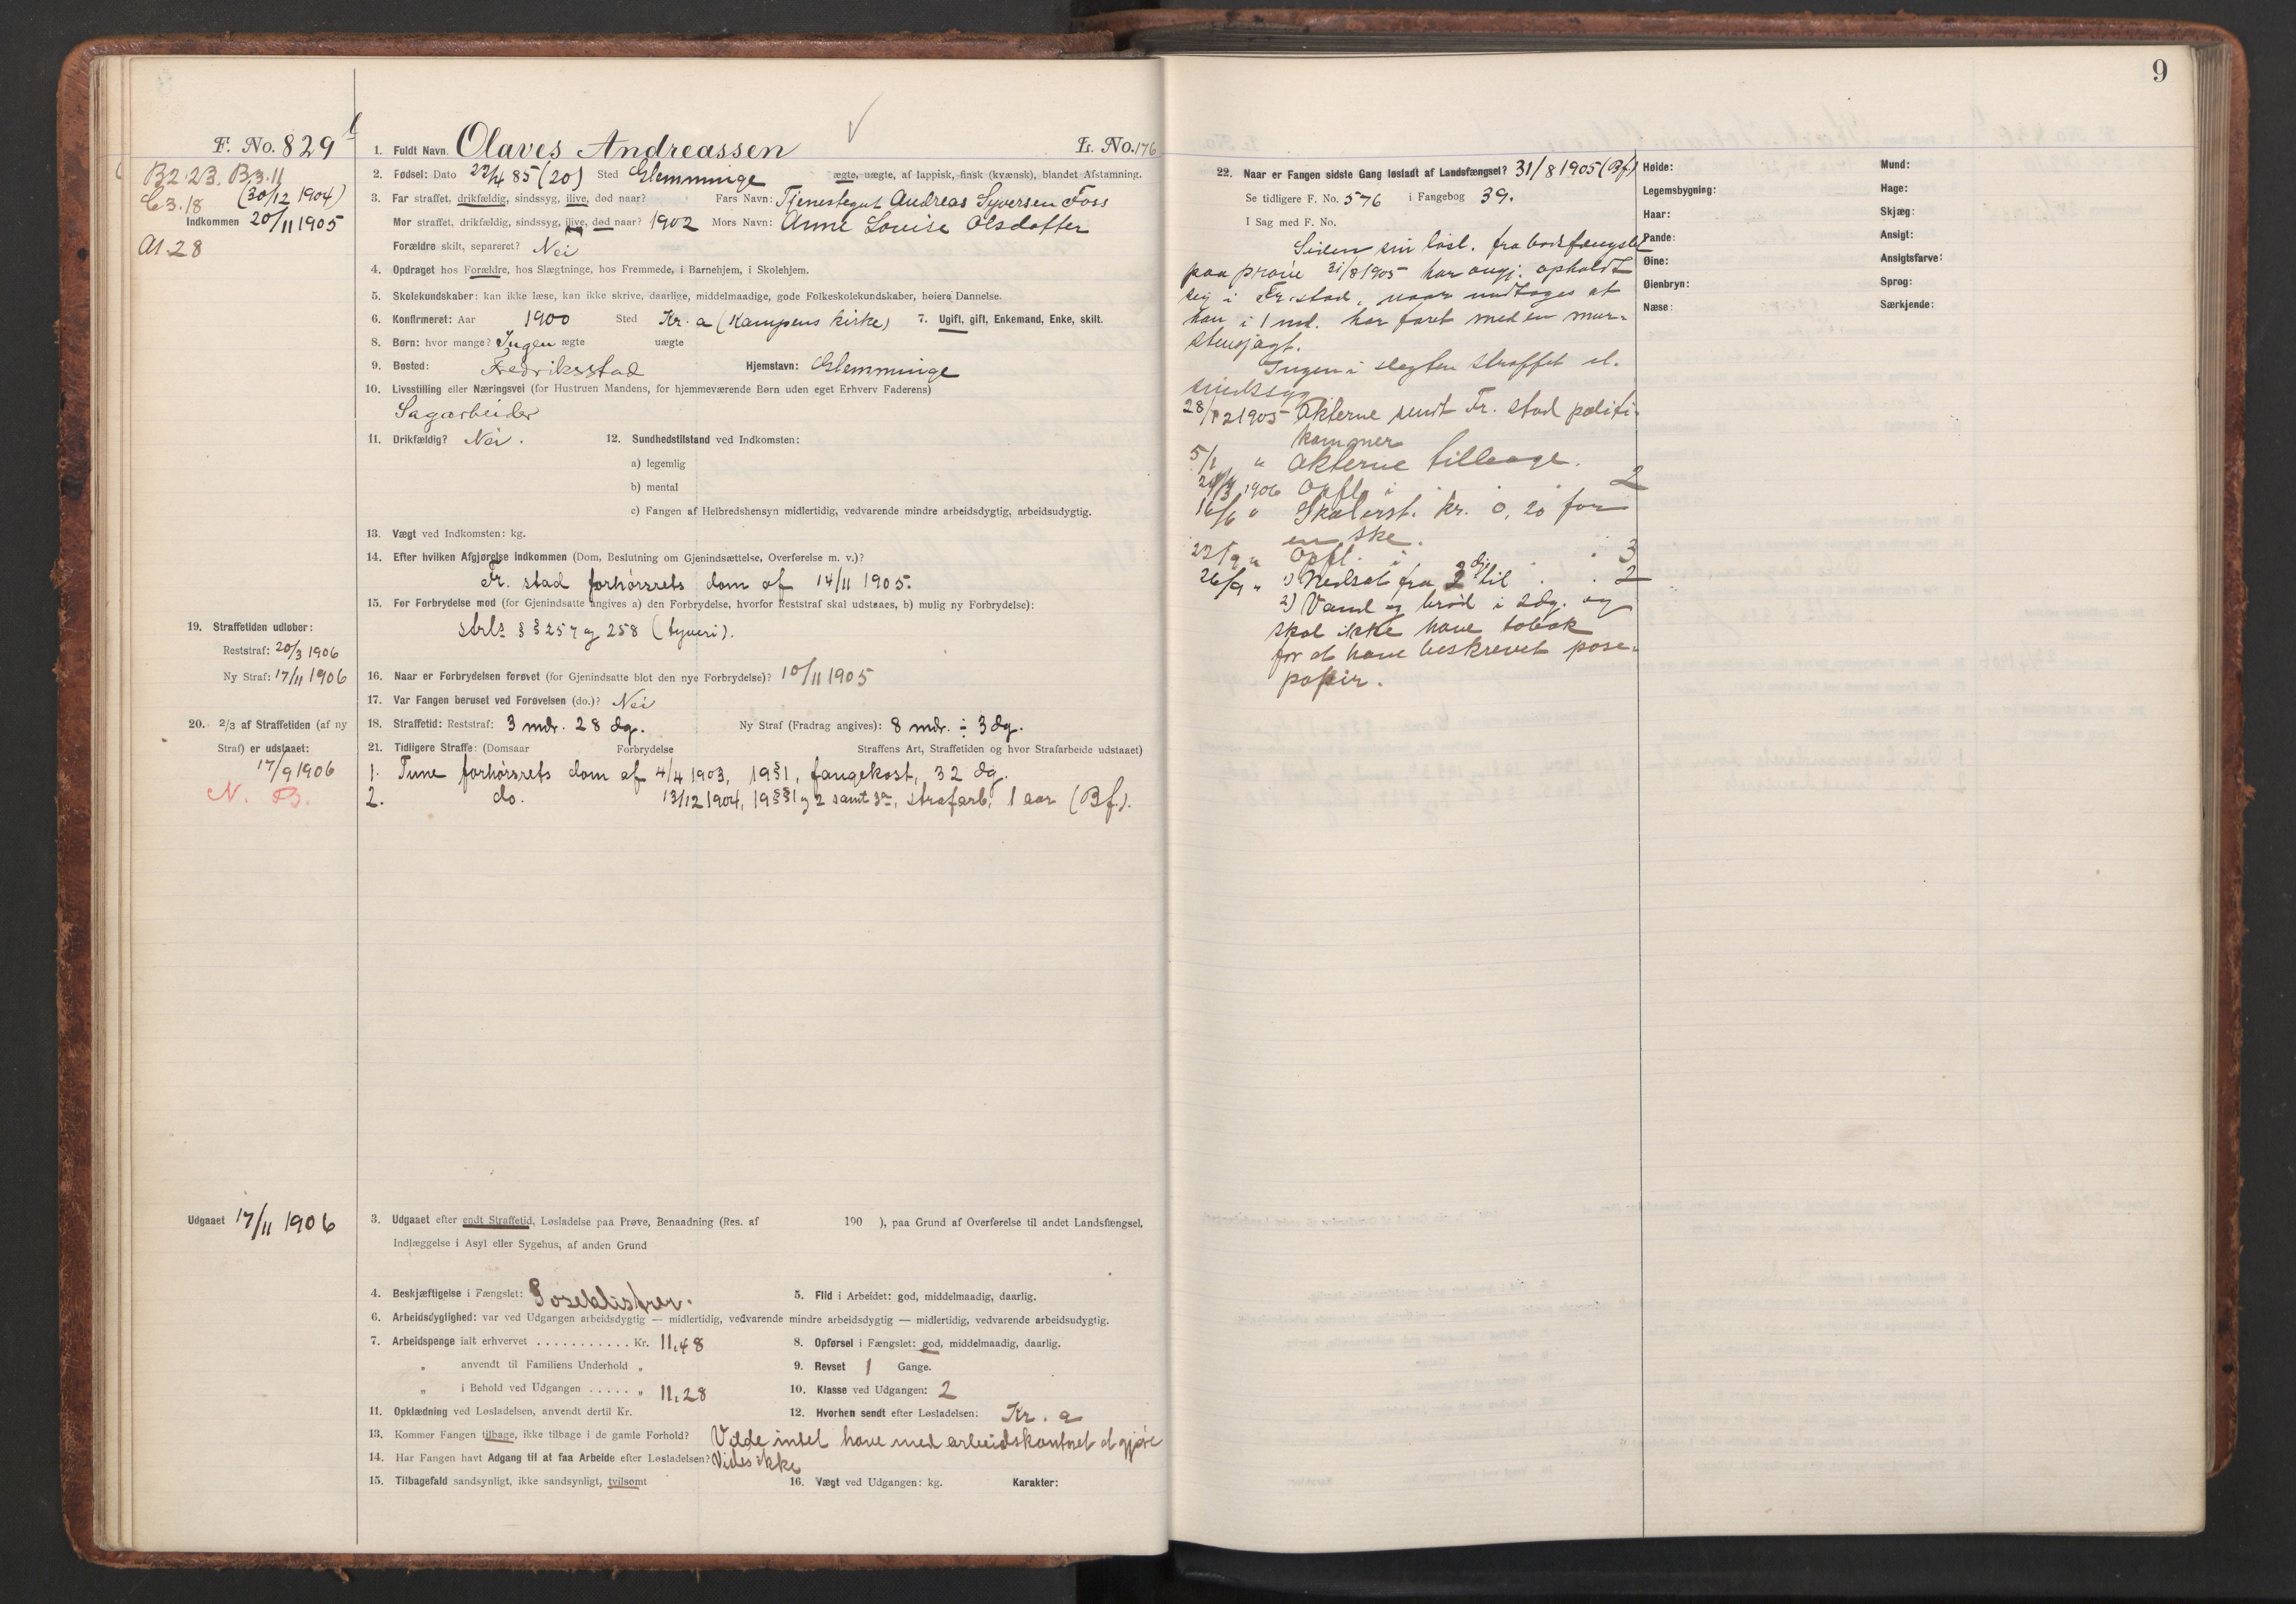 9
F. No. 829
1. Fuldt Navn. Olaves Andreassen L. No. 176
B2.23. B3.11
C3.18 (30/12 1904)
Indkommen 20/11 1905
A1.28
2. Fødsel: Dato 22/4 85 (20) Sted Glemminge ægte, uægte, af lappisk, finsk (kvænsk), blandet Afstamning.
3. Far straffet, drikfældig, sindssyg, ilive, død naar? Fars Navn: Tjenestegut Andreas Syversen Foss
Mor straffet, drikfældig, sindssyg, ilive, død naar? 1902 Mors Navn: Anne Lovise Olsdatter
Forældre skilt, separeret? Nei
4. Opdraget hos Forældre, hos Slægtninge, hos Fremmede, i Barnehjem, i Skolehjem.
5. Skolekundskaber: kan ikke læse, kan ikke skrive, daarlige, middelmaadige, gode Folkeskolekundskaber, høiere Dannelse.
6. Konfirmeret: Aar 1900 Sted Kr. a (Kampens kirke) 7. Ugift, gift, Enkemand, Enke, skilt.
8. Børn: hvor mange? Ingen ægte uægte
9. Bosted: Fredriksstad Hjemstavn: Glemminge
10. Livsstilling eller Næringsvei (for Hustruen Mandens, for hjemmeværende Børn uden eget Erhverv Faderens)
Sagarbeider
11. Drikfældig? Nei. 12. Sundhedstilstand ved Indkomsten:
a) legemlig
b) mental
c) Fangen af Helbredshensyn midlertidig, vedvarende mindre arbeidsdygtig, arbeidsudygtig.
13. Vægt ved Indkomsten: kg.
14. Efter hvilken Afgjørelse indkommen (Dom, Beslutning om Gjenindsættelse, Overførelse m. v.)?
Fr. stad forhørsrets dom af 14/11 1905.
15. For Forbrydelse mod (for Gjenindsatte angives a) den Forbrydelse, hvorfor Reststraf skal udstaaes, b) mulig ny Forbrydelse):
strls §§ 257 og 258 (tyveri).
19. Straffetiden udløber:
Reststraf: 20/3 1906
Ny Straf: 17/11 1906
16. Naar er Forbrydelsen forøvet (for Gjenindsatte blot den nye Forbrydelse)? 10/11 1905
17. Var Fangen beruset ved Forøvelsen (do.)? Nei
20. 2/3 af Straffetiden (af ny
Straf) er udstaaet:
17/9 1906
N. B.
18. Straffetid: Reststraf: 3 mdr. 28 dg. Ny Straf (Fradrag angives): 8 mdr. ÷ 3 dg.
21. Tidligere Straffe: (Domsaar Forbrydelse Straffens Art, Straffetiden og hvor Strafarbeide udstaaet)
1. Tune forhørsrets dom af 4/4 1903, 19 § 1, fangekost, 32 dg.
2. do. 13/12 1904, 19 §§ 1 og 2 samt 3a, strafarb. 1 aar (Bf.).
Udgaaet 17/11 1906
3. Udgaaet efter endt Straffetid, Løsladelse paa Prøve, Benaadning (Res. af 190 ), paa Grund af Overførelse til andet Landsfængsel,
Indlæggelse i Asyl eller Sygehus, af anden Grund
4. Beskjæftigelse i Fængslet: Poseklistrer. 5. Flid i Arbeidet: god, middelmaadig, daarlig.
6. Arbeidsdygtighed: var ved Udgangen arbeidsdygtig — midlertidig, vedvarende mindre arbeidsdygtig — midlertidig, vedvarende arbeidsudygtig.
7. Arbeidspenge ialt erhvervet ........... Kr. 11.48 8. Opførsel i Fængslet: god, middelmaadig, daarlig.
„ anvendt til Familiens Underhold „ 9. Revset 1 Gange.
„ i Behold ved Udgangen ..... „ 11.28 10. Klasse ved Udgangen: 2
11. Opklædning ved Løsladelsen, anvendt dertil Kr. 12. Hvorhen sendt efter Løsladelsen: Kr. a
13. Kommer Fangen tilbage, ikke tilbage i de gamle Forhold? Vilde intet have med arbeidskontoret at gjøre
14. Har Fangen havt Adgang til at faa Arbeide efter Løsladelsen? Vides ikke
15. Tilbagefald sandsynligt, ikke sandsynligt, tvilsomt 16. Vægt ved Udgangen: kg. Karakter:
22. Naar er Fangen sidste Gang løsladt af Landsfængsel? 31/8 1905 (Bf.)
Se tidligere F. No. 576 i Fangebog 39.
I Sag med F. No.
Siden sin løsl. fra bodsfængslet
paa prøve 31/8 1905 har angj. opholdt
sig i Fr.stad, naar undtages at
han i 1 md. har faret med en mur-
stensjagt.
Ingen i slegten straffet el.
sindssyg
28/12 1905 Akterne sendt Fr. stad politi-
kammer
5/1 " Akterne tilbage.
1906 Opfl. i 2
16/6 " Skal erst. kr. 0,20 for
en ske.
22/9 " Opfl. i 3
26/9 " 1) Nedsat fra 3 til 2
2) Vand og brød i 2 dg. og
skal ikke have tobak
for at have beskrevet pose-
papir.
Høide: Mund:
Legemsbygning: Hage:
Haar: Skjæg:
Pande: Ansigt:
Øine: Ansigtsfarve:
Øienbryn: Sprog:
Næse: Særkjende: